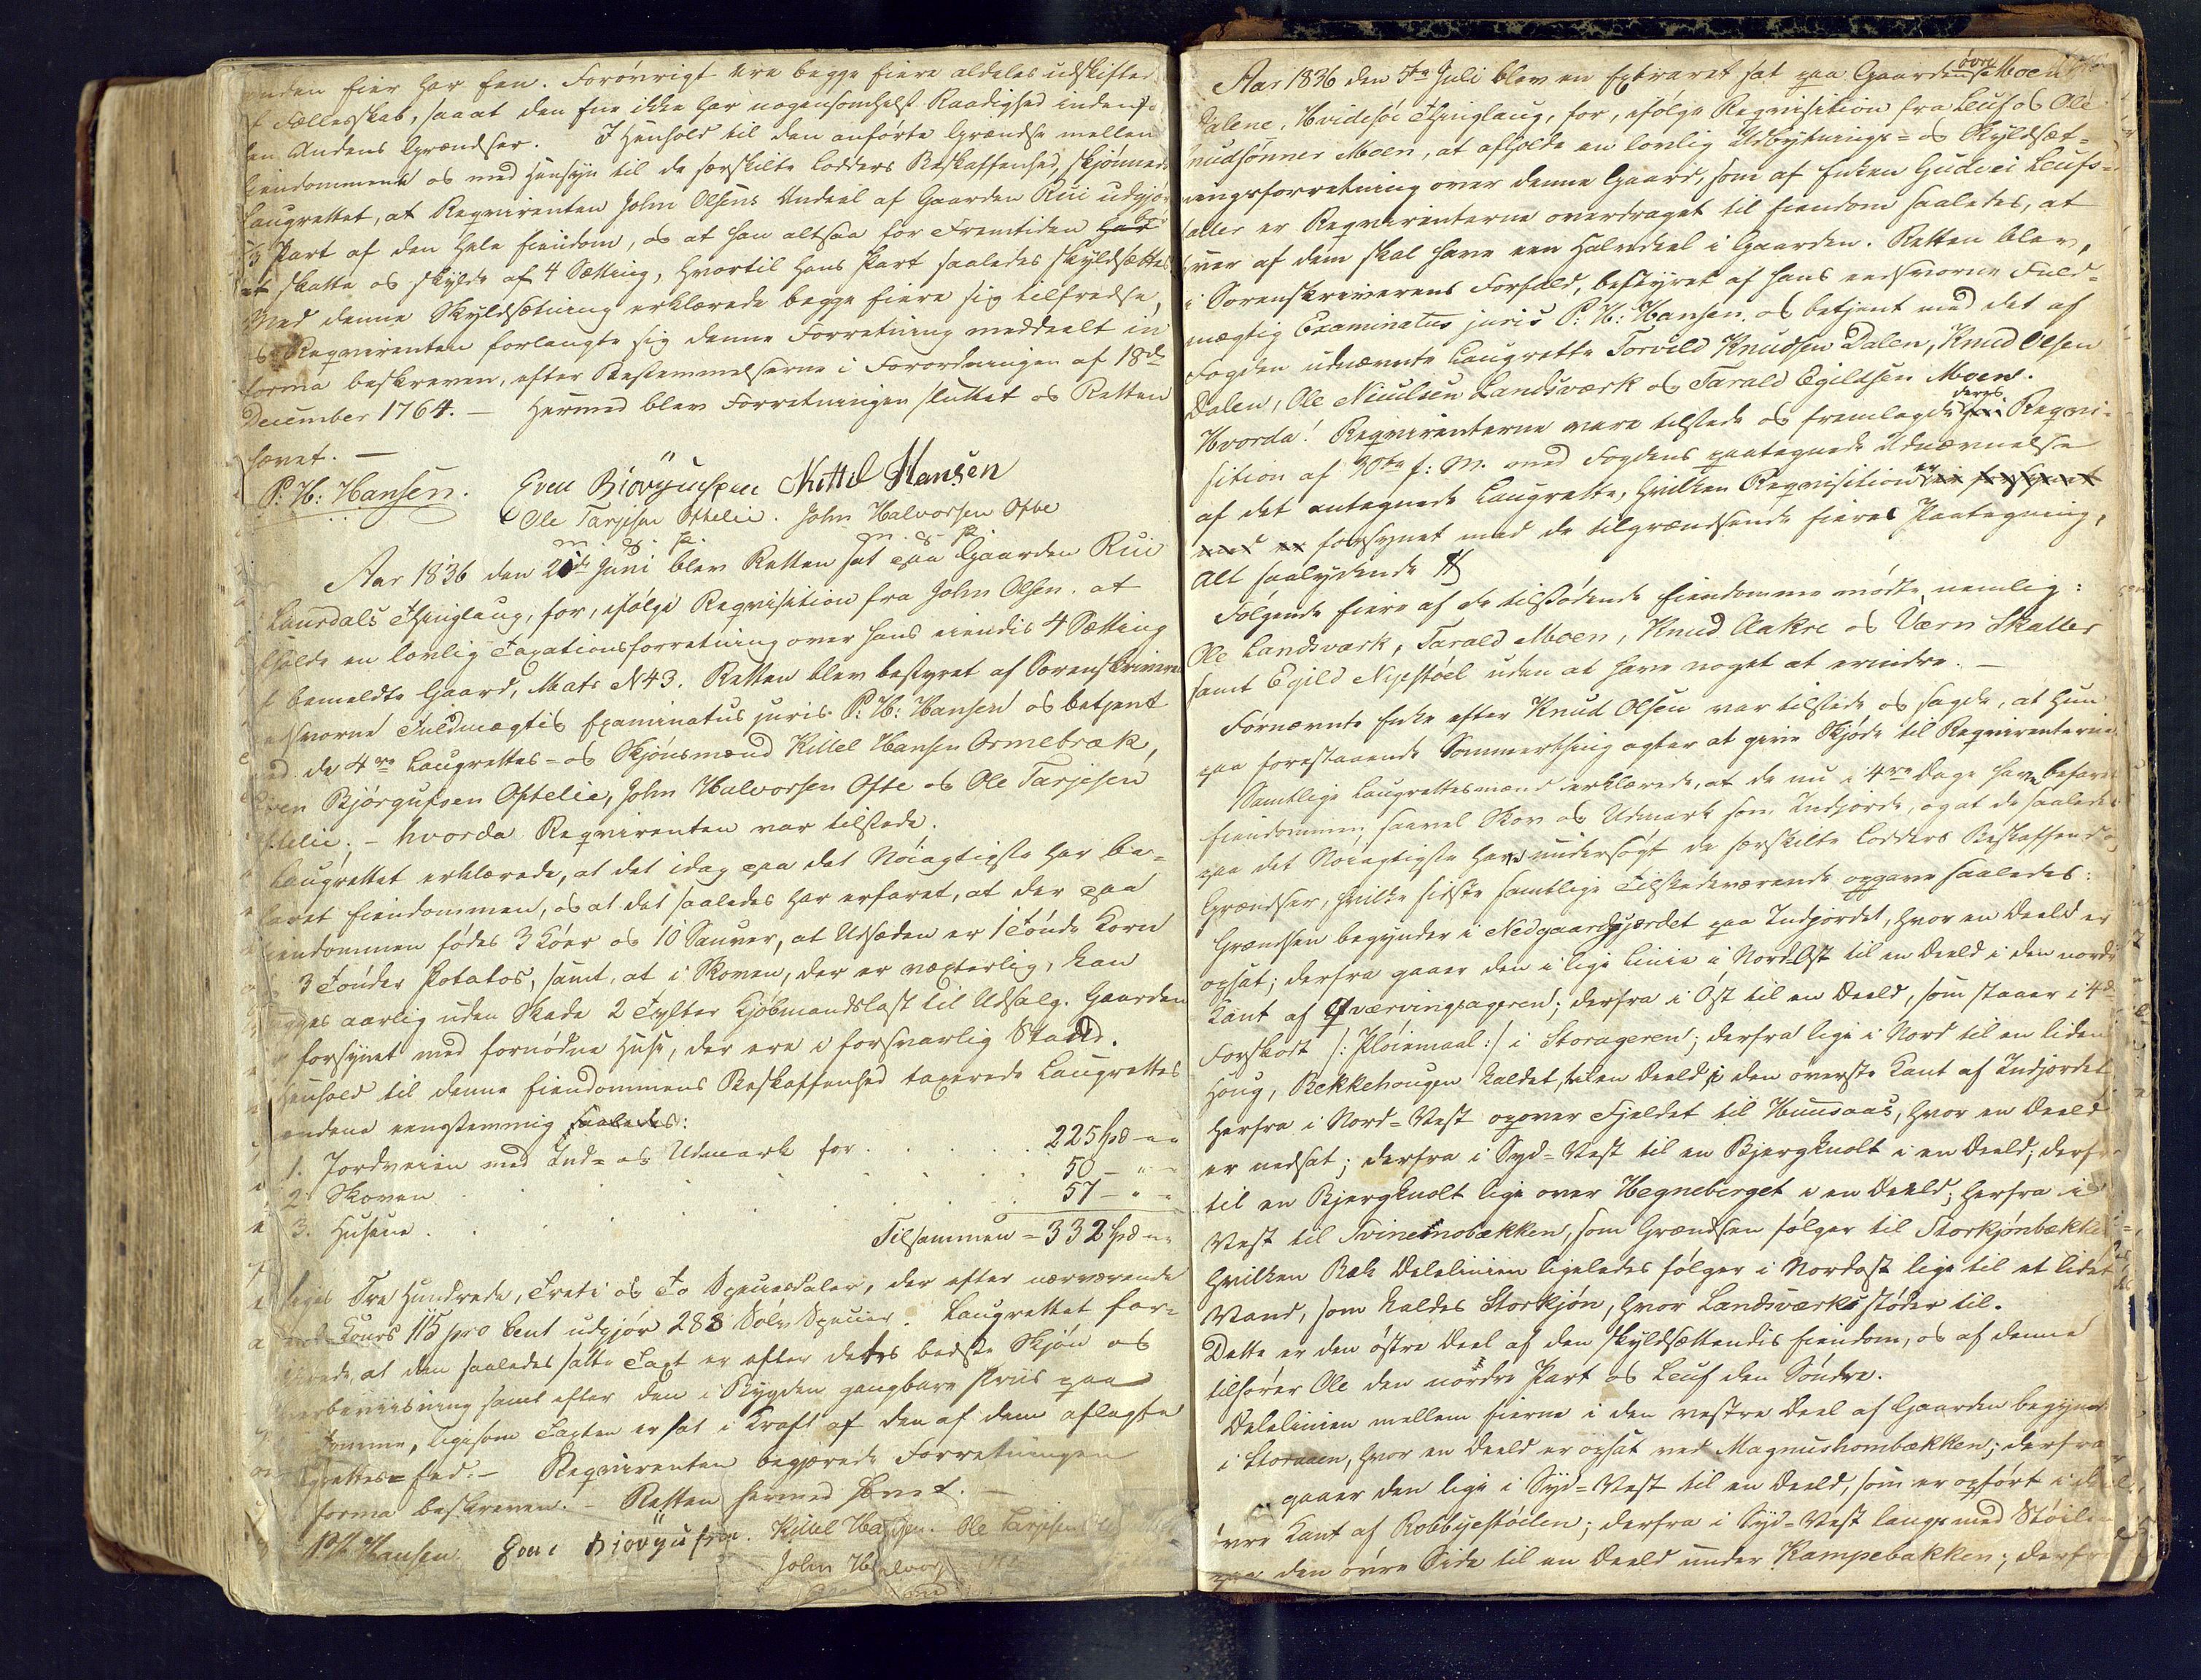 anden Eier har Een. Forøvrigt ere begge Eiere aldeles udskiftet
af Fælleskab, saaat den Ene ikke har nogensomhelst Raadighed indenf-
den Andens Grændser. I Henhold til den anførte Grændse mellem
Eiendommene og med Hensyn til de særskilte Lodders Beskaffenhed, skjønnede
Laugrettet, at Reqvirenten John Olsens Andeel af Gaarden Rui udgjør
1/3 Part af den hele Eiendom, og at han altsaa for Fremtiden bør
at skatte og skylde af 4 Sætting, hvortil hans Part saaledes skyldsættes
Med denne Skyldsætning erklærede begge Eiere sig tilfredse,
og Reqvirenten forlangte sig denne Forretning meddeelt in
forma beskreven, efter Bestemmelserne i Forordningen af 18de
December 1764. — Hermed blev Forretningen sluttet og Retten
hævet. —
P: H: Hansen. Even Biövÿufsen Kittil Hansen
Ole Tarjesen Oftelie. John Halvorsen Ofte
m. p. P. m. p. P.
Aar 1836 den 21de Juni blev Retten sat paa Gaarden Rui
Laurdals Thinglaug, for, ifølge Reqvisition fra John Olsen, at
afholde en lovlig Taxationsforretning over hans eiendis 4 Sætting
i bemeldte Gaard, Matr N 43. Retten blev bestyret af Sorenskriverens
edsvorne Fuldmægtig Examinatus juris P: H: Hansen og betjent
med de 4re Laugrettes- og Skjønsmænd Kittel Hansen Ormebræk,
Even Bjørgufsen Oftelie, John Halvorsen Ofte og Ole Tarjesen
Oftelie. – hvorda Reqvirenten var tilstede.
Laugrettet erklærede, at det idag paa det Nöiagtigste har be-
faret Eiendommen, og at det saaledes har erfaret, at der paa
Eiendommen födes 3 Köer og 10 Sauver, at Udsæden er 1 Tönde Korn
3 Tönder Potatos, samt, at i Skoven, der er væxterlig, kan
hugges aarlig uden Skade 2 Tylter Kjøbmandslast til Udsalg. Gaarden
er forsynet med fornödne Huse, der ere i forsvarlig Stand.
I Henhold til denne Eiendommens Beskaffenhed taxerede Laugrettes
mændene eenstemmig saaledes:
1. Jordveien med Ind- og Udmark for . . . . . 225 Spd - "
2. Skoven . . . . . . 50 - " -
3. Husene . . . . . . 57 - " -
Tilsammen = 332 Spd - "
siges Tre Hundrede, Treti og To Speciesdaler, der efter nærværende
Cours 115 pro Cent udgjør 288 Sølv Species. Laugrettet for-
klarede, at den saaledes satte Taxt er efter dets bedste Skjøn og
Overbeviisning samt efter den i Bygden gangbare Priis paa
Eiendomme, ligesom Taxten er sat i Kraft af den af dem aflagte
Laugrettes-Eed. – Reqvirenten begjærede Forretningen
in forma beskreven. – Retten hermed hævet. —
P. H. Hansen. Even Biövÿufsen. Kittel Hansen. Ole Tarjesen
John Halvor
Aar 1836 den 7de Juli blev en Extraret sat paa Gaarden øvre Moen
Dalene, Hvidesøe Thinglaug, for, ifølge Reqvisition fra Leuf og Ole
Knudsönner Moen, at afholde en lovlig Udbytnings- og Skyldsæt-
ningsforretning over denne Gaard, som af Enken Gudvei Leufs-
datter er Reqvirenterne overdraget til Eiendom saaledes, at
hver af dem skal have een Halvdeel i Gaarden. Retten blev,
i Sorenskriverens Forfald, bestyret af hans eedsvorne Fuld-
mægtig Examinatus juris P: H: Hansen og betjent med det af
Fogden udnævnte Laugrette Torvild Knudsen Dalen, Knud Olsen
Dalen, Ole Nieulsen Landsværk og Tarald Egildsen Moen.
Hvorda! Reqvirenterne vare tilstede og fremlagde deres Reqvi-
sition af 30te f: M. med Fogdens paategnede Udnævnelse
af det antegnede Laugrette, hvilken Reqvisition er
forsynet med de tilgrændsende Eieres Paategning,
Alt saalydende
Følgende Eiere af de tilstödende Eiendomme mødte, nemlig:
Ole Landsværk, Tarald Moen, Knud Aakre og Værn Skatter
samt Egild Nipestöel uden at have noget at erindre. —
Fornævnte Enke efter Knud Olsen var tilstede og sagde, at hun
paa forestaaende Sommerthing agter at give Skjøde til Reqvirenterne.
Samtlige Laugrettesmænd erklærede, at de nu i 4re Dage have befaret
Eiendommen, saavel Skov og Udmark som Indjorde, og at de saaledes
paa det Nöiagtigste have undersøgt de særskilte Lodders Beskaffenhed og
Grændser, hvilke sidste samtlige Tilstedeværende opgave saaledes:
Grændsen begynder i Nedgaardgjærdet paa Indjordet, hvor en Deeld er
opsat; derfra gaaer den i lige Linie i Nord-Ost til en Deeld i den nordre
Kant af Qværvingsageren; derfra i Öst til en Deeld, som staaer i 4de
Forskodt /: Plöiemaal :/ i Storageren; derfra lige i Nord til en liden
Houg, Bekkehougen kaldet, til en Deeld i den överste Kant af Indjordet
herfra i Nord-Vest opover Fjeldet til Huusaas, hvor en Deeld
er nedsat; derfra i Syd-Vest til en Bjergknolt i en Deeld; derfra
til en Bjergknolt lige over Hegneberget i en Deeld; herfra i
Vest til Tvinemobækken, som Grændsen følger til Storkjönbækken
hvilken Bæk Delelinien ligeledes følger i Nordost lige til et lidet
Vand, som kaldes Storkjön, hvor Landsværk støder til.
Dette er den østre Deel af den skyldsættendes Eiendom, og af denne
tilhører Ole den nordre Part og Leuf den Söndre.
Delelinien mellem Eierne i den vestre Deel af Gaarden begynder
i Storaaen, hvor en Deeld er opsat ved Magnushombækken; derfra
gaaer den lige i Syd-Vest til en Deeld, som er opført i
övre Kant af Robbyestöilen; derfra i Syd-Vest langs med Stöilen
paa den övre Side til en Deeld under Kampebakken; derfra